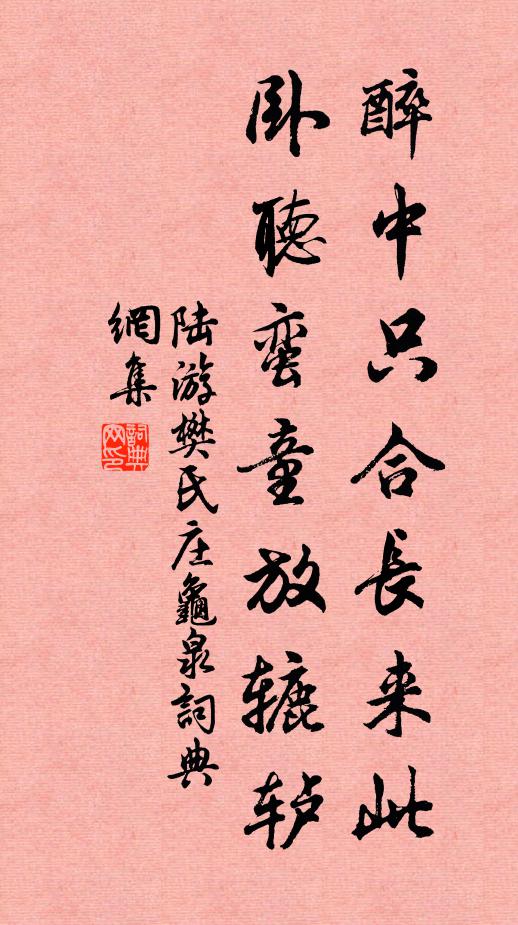 醉中只合長来此
卧聽蛮童放辘轳
陆游樊氏庄龜泉詞典
網集
詞典
网印